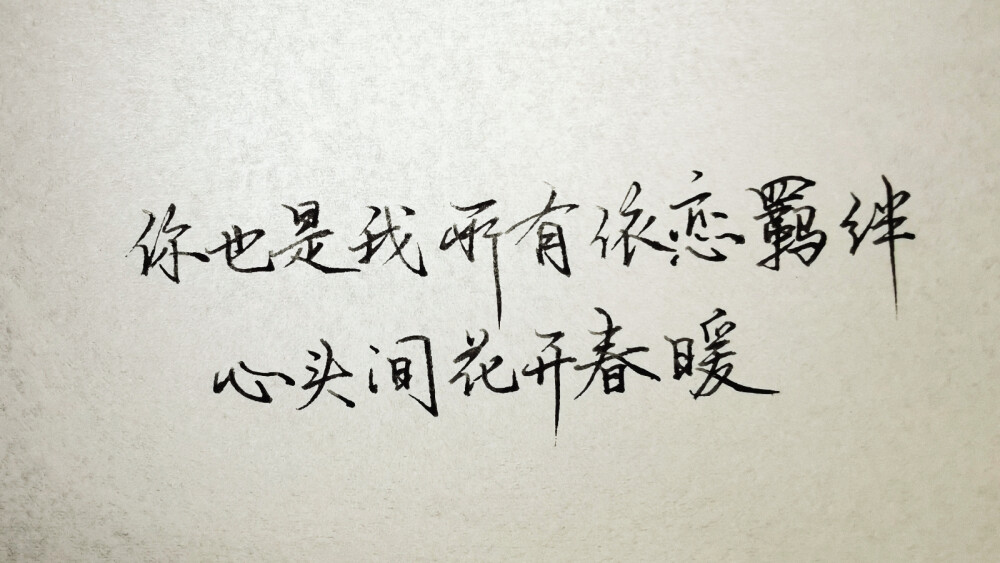 你也是我所有依恋羁绊
心头间花开春暖